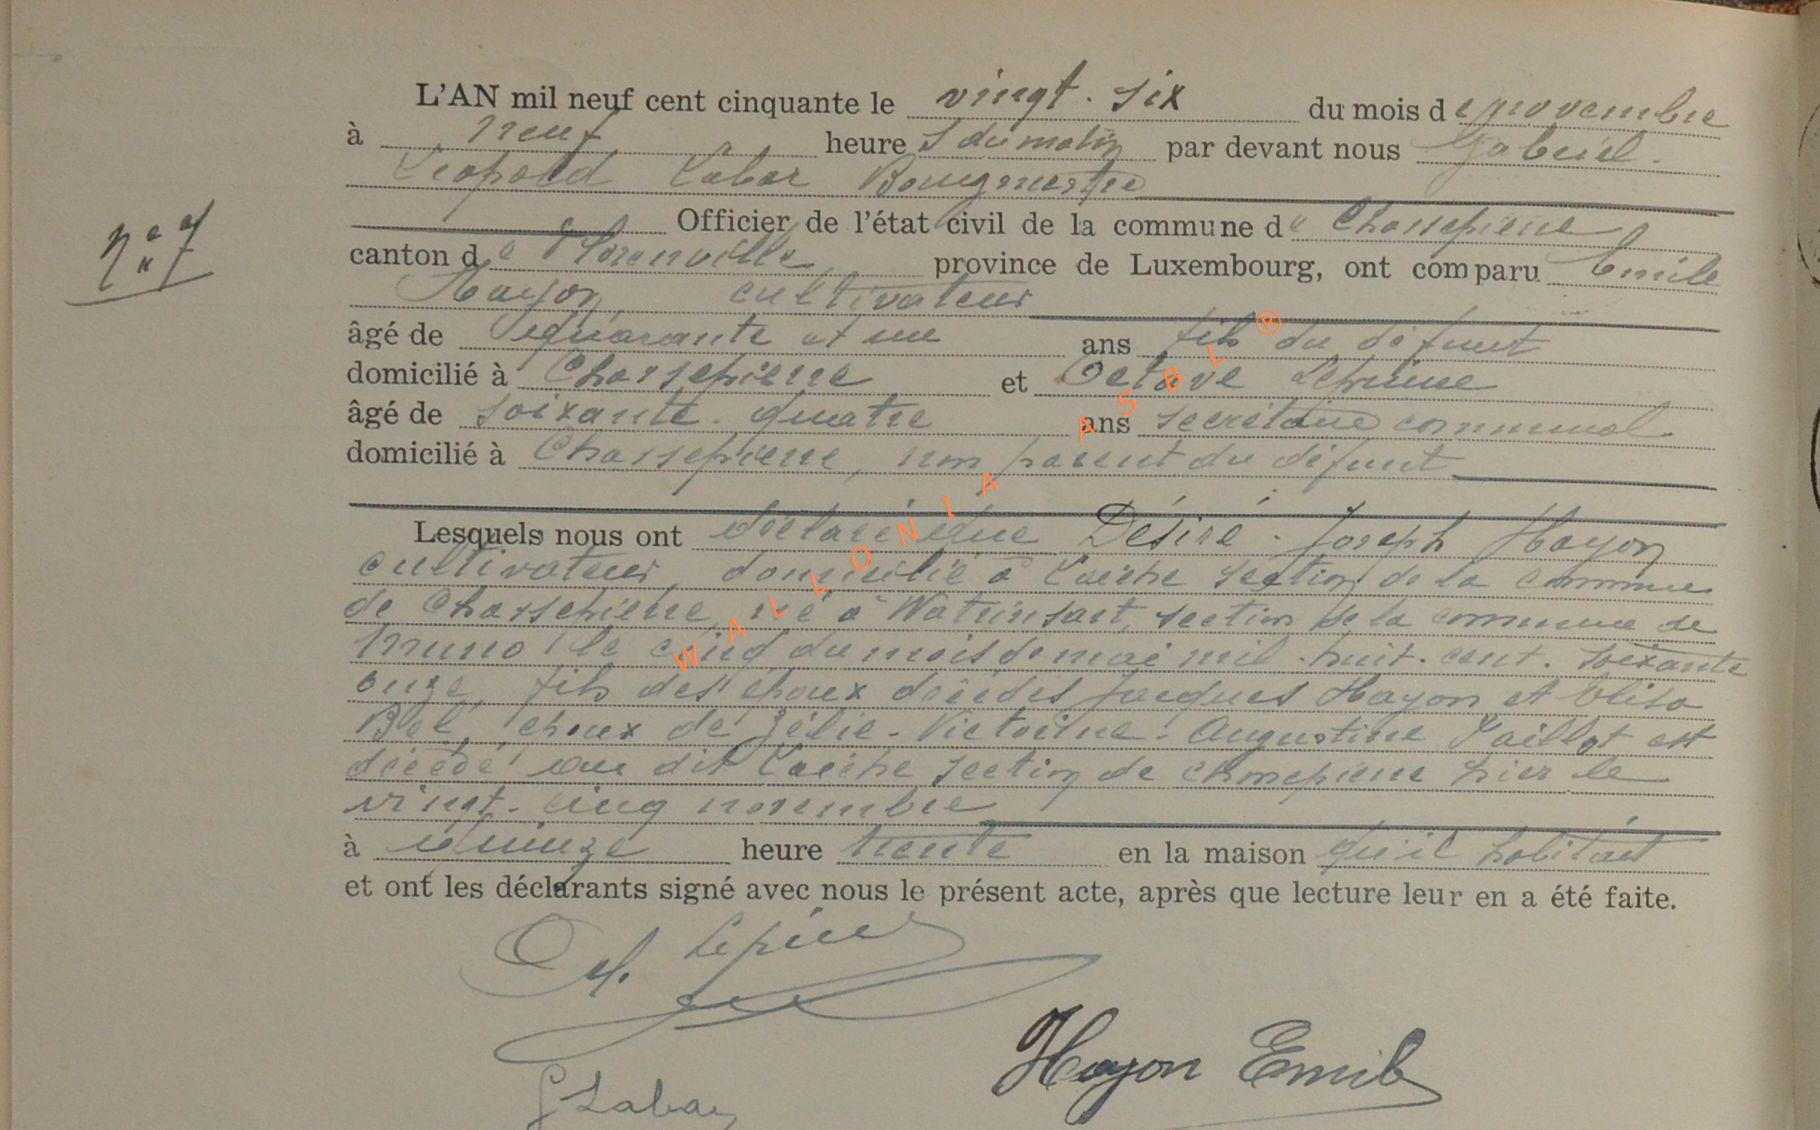 L'AN mil neuf cent cinquante le vingt-six du mois de novembre
à neuf heures du matin par devant nous Gabriel
Léopold Labar Bourgmestre
n° 7
Officier de l'état civil de la commune de Chassepierre
canton de Florenville province de Luxembourg, ont comparu Emile
Hayon cultivateur
âgé de quarante et un ans fils du défunt
domicilié à Chassepierre et Octave
âgé de soixante-quatre ans secrétaire communal
domicilié à Chassepierre, non parent du défunt
Lesquels nous ont déclaré que Désiré-Joseph Hayon
cultivateur, domicilié à Laiche section de la commune
de Chassepierre, né à Watrinsart, section de la commune de
Muno, le cinq du mois de mai mil-huit-cent-soixante
onze, fils des époux décédés Jacques Hayon et Elisa
Bel, époux de Zélie-Victorine-Augustine est
décédé au dit Laiche section de Chassepierre hier le
vingt-cinq novembre
à quinze heure trente en la maison qu'il habitait
et ont les déclarants signé avec nous le présent acte, après que lecture leur en a été faite.
Hayon Emile
G Labar
WALLONIA ASBL ®